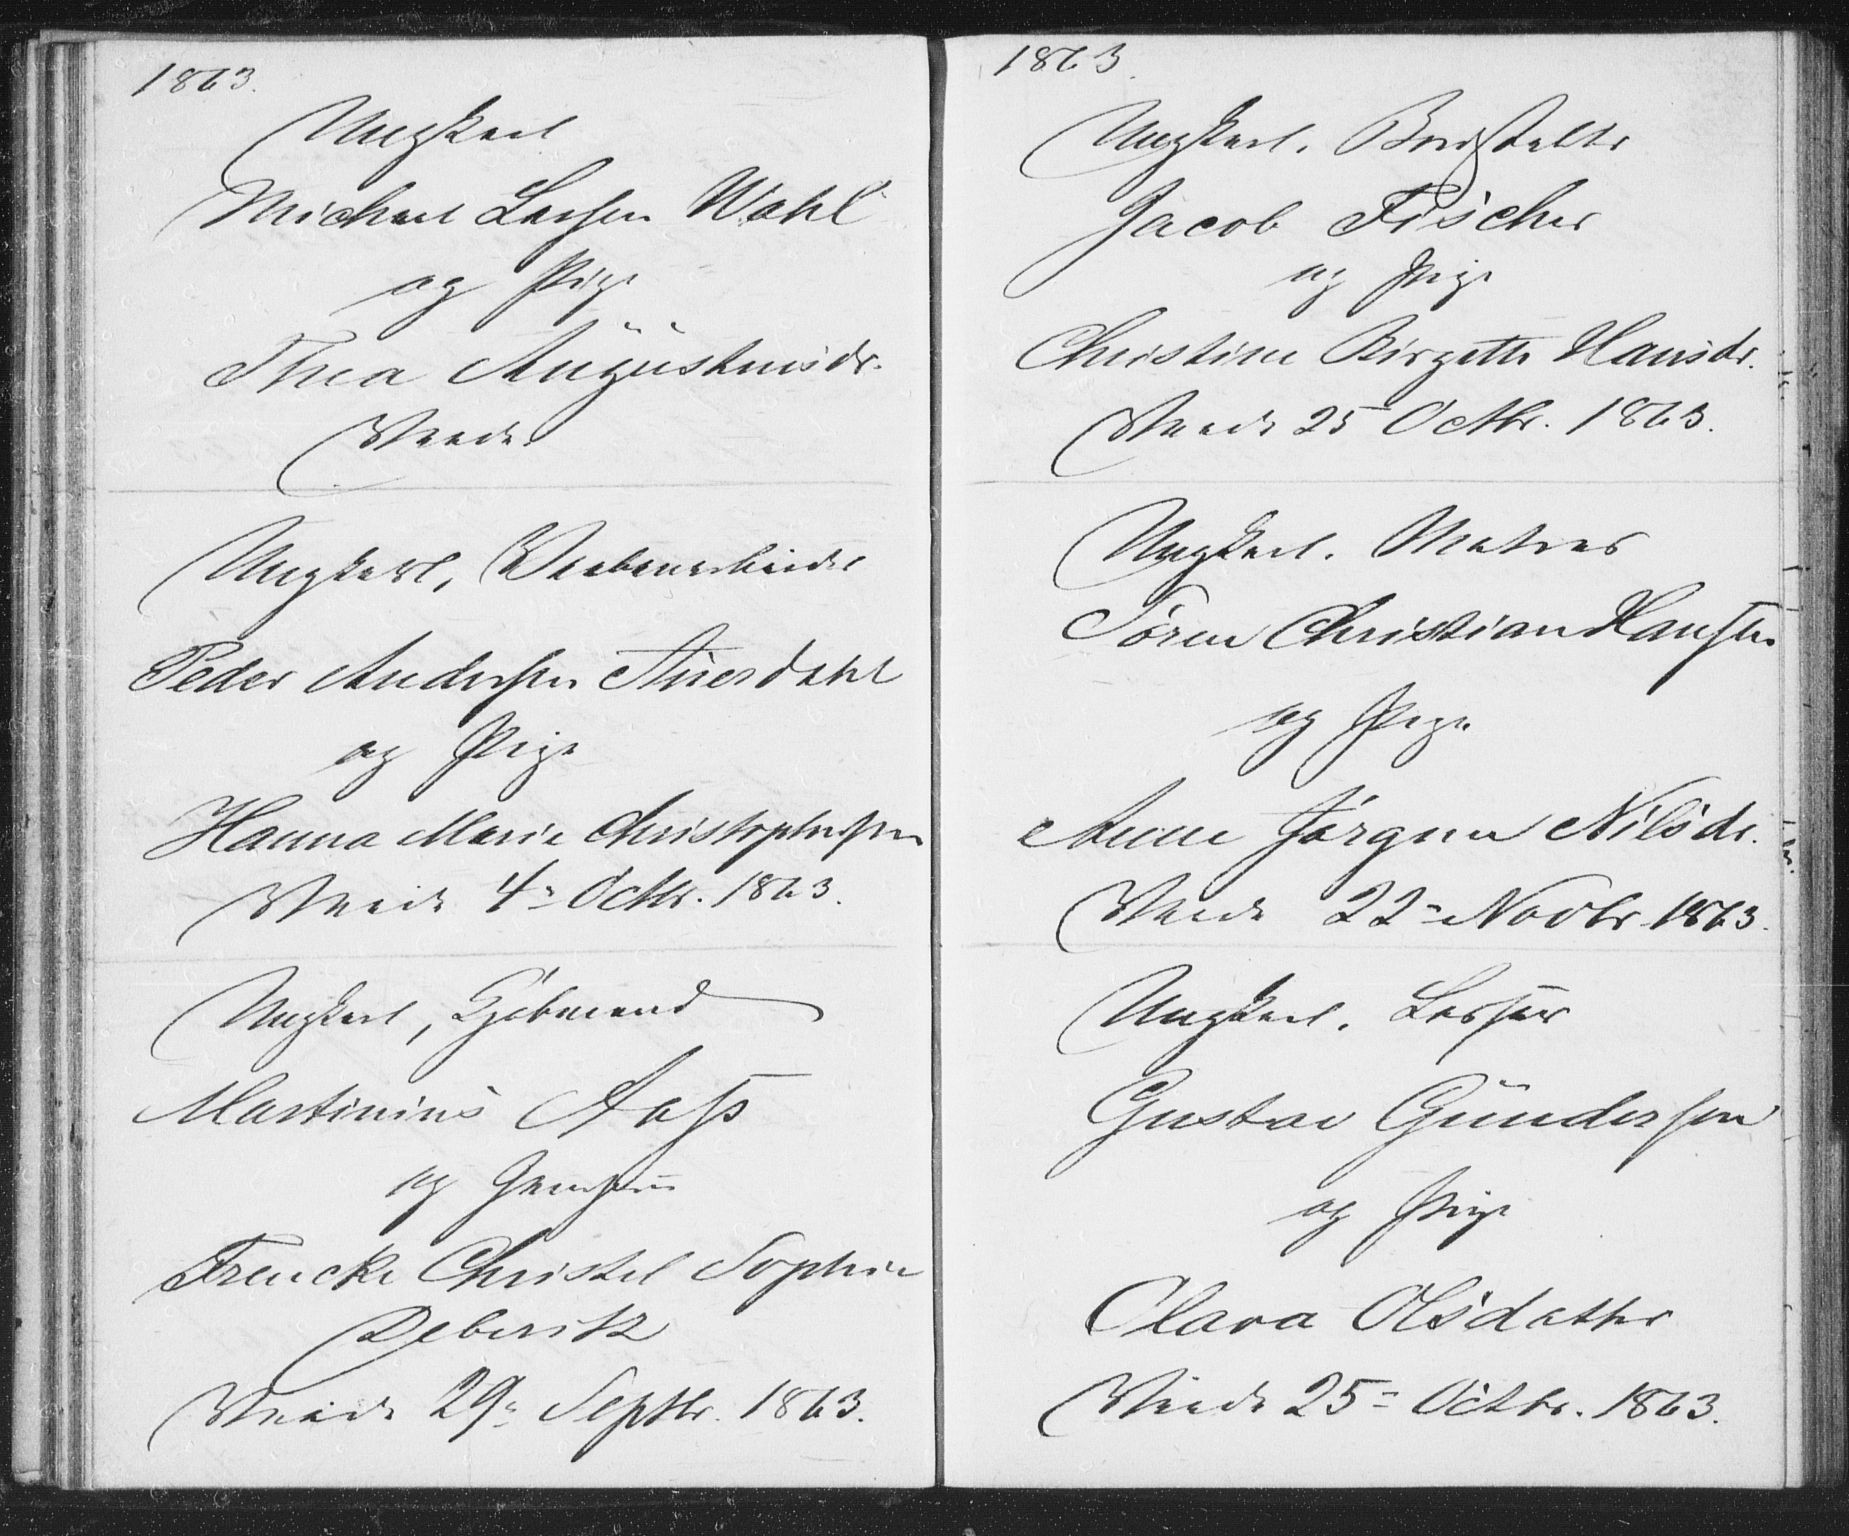 1863.
Ungkarl
Michael Larsen Wahl
og Pige
Thea Augustinusdr.
Viede

Ungkarl,
Peder Andersen
og Pige
Hanna Marie Christophersen
Viede 4de Octbr. 1863.

Ungkarl, Kjøbmand
Martinius Aass
og
Frencke Christel Sophie
Viede 29de Septbr. 1863.

1863.
Ungkarl.
Jacob Fischer
og Pige
Christine Birgette Hansdr.
Viede 25 Octbr. 1863.

Ungkarl. Matros
Søren Christian Hansen
og Pige
Anne Jørgine Nilsdr.
Viede 22de Novbr. 1863.

Ungkarl.
Gustav Gundersen
og Pige
Clara Olsdatter
Viede 25de Octbr. 1863.